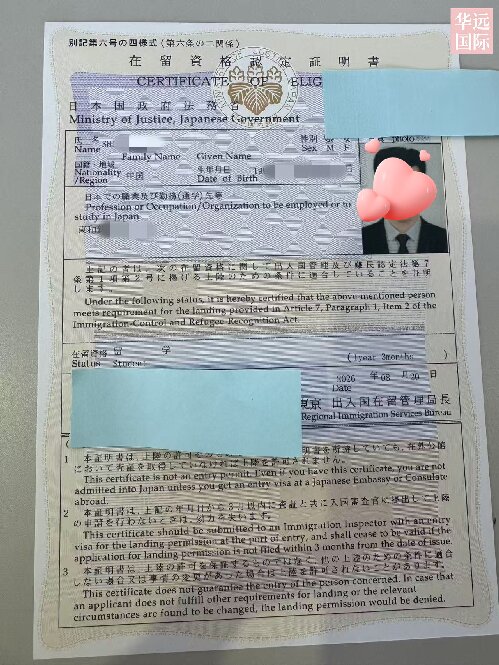 华远
国际
別記第六号の四様式(第六条の二関係)
在留資格認定証明書
CERTIFICATE OF ELIG
日本国政府法務省
Ministry of Justice, Japanese Government
氏名
Name
Family Name Given Name
性別 男 女
Sex M F
photo
国籍・地域
Nationality
/Region
中国
生年月日
Date of Birth
日本での職業及び勤務(通学)先等
Profession or Occupation/Organization to be employed or to
study in Japan
上記の者は、次の在留資格に関して出入国管理及び難民認定法第7
条第1項第2号に掲げる上陸のための条件に適合していることを証明
します。
Under the following status, it is hereby certified that the above-mentioned person
meets requirement for the landing provided in Article 7, Paragraph 1, Item 2 of the
Immigration-Control and Refugee-Recognition Act.
在留資格 留 学
Status Student
(1year 3months
年 月 20日
Date
東京 出入国在留管理局長
Regional Immigration Services Bureau
1 本証明書は、上陸の許可
において査証を取得していなければ上陸を許可されません。
This certificate is not an entry permit. Even if you have this certificate, you are not
admitted into Japan unless you get an entry visa at a Japanese Embassy or Consulate
abroad.
2 本証明書は、上記の年月日から3か月以内に査証と共に入国審査官に提出して上陸
の申請を行わないときは、効力を失います。
This certificate should be submitted to an Immigration Inspector with an entry
visa for the landing permission at the port of entry, and shall cease to be valid if the
application for landing permission is not filed within 3 months from the date of issue.
3 本証明書は、上陸の許可を保証するものではなく、他の上陸のための条件に適合
しない場合又は事情の変更があった場合は上陸を許可されないことがあります。
This certificate does not guarantee the entry of the person concerned. In case that
an applicant does not fulfill other requirements for landing or the relevant
circumstances are found to be changed, the landing permission would be denied.